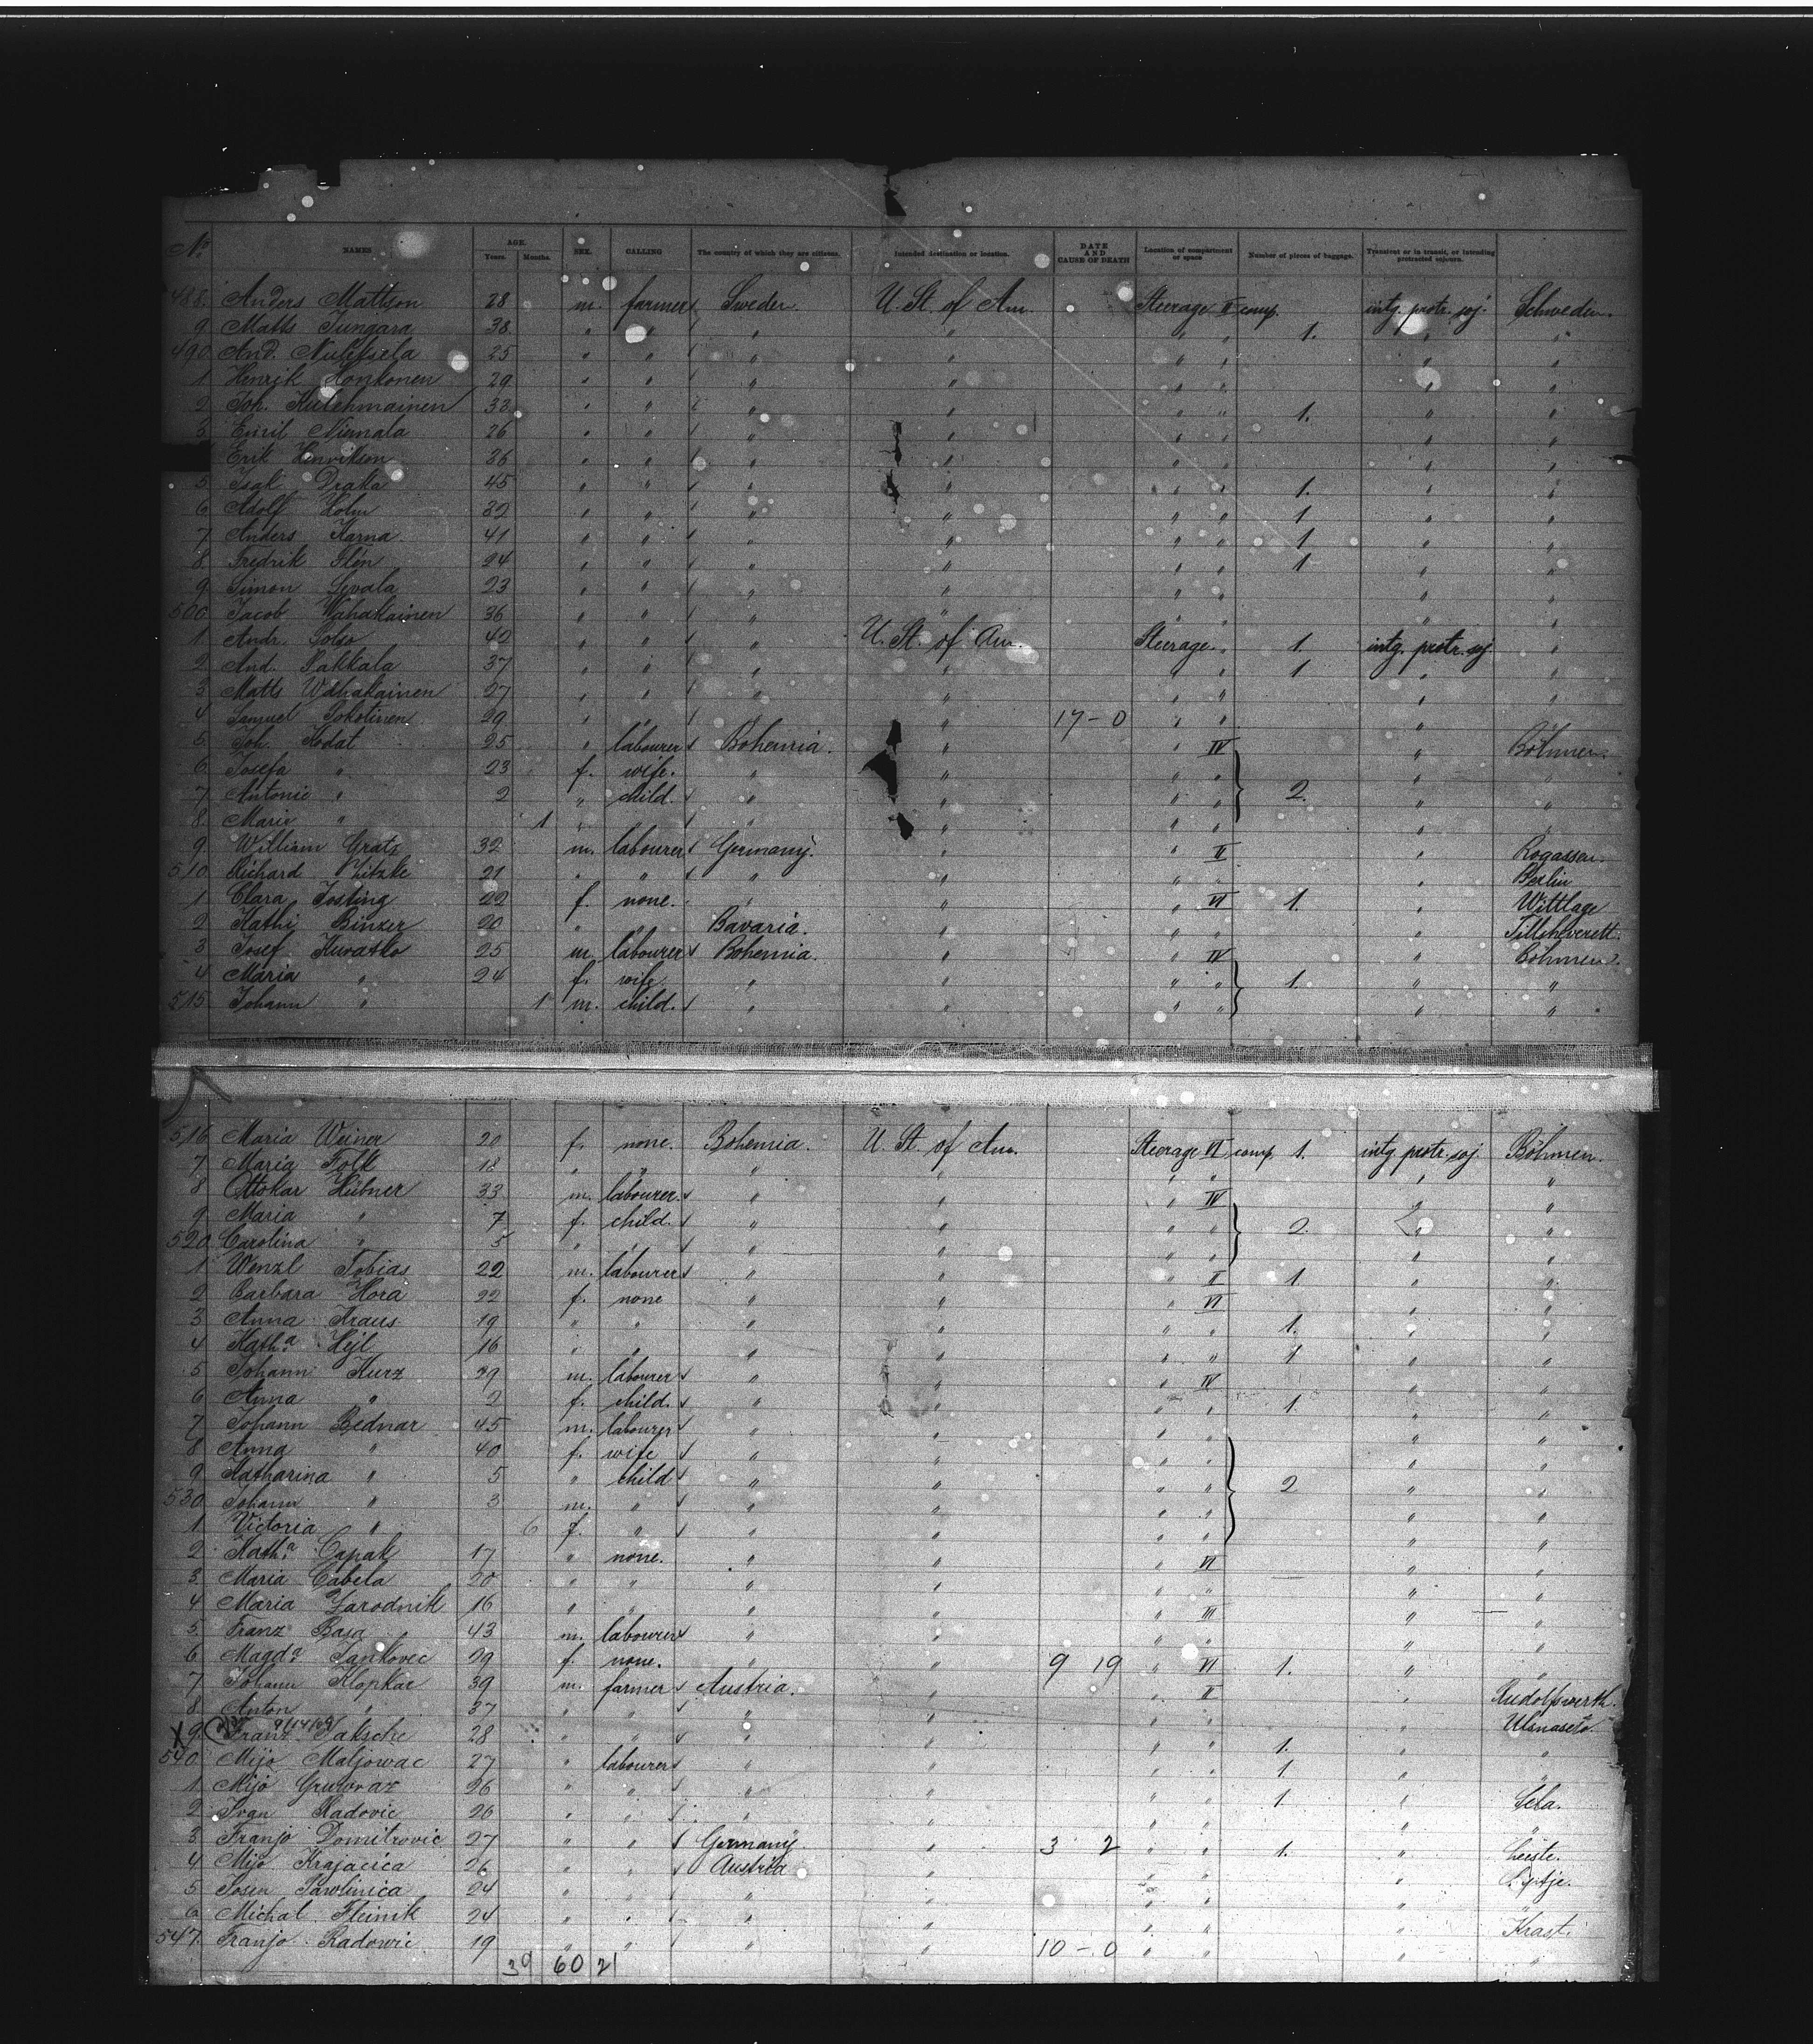 No. NAMES AGE. Years. Months. SEX. CALLING The country of which they are citizens. Intended destination or location. DATE AND CAUSE OF DEATH Location of compartment or space Number of pieces of baggage. Transient or in transit, or intending protracted sojourn.
488. Anders Mattson 28 m. farmer Sweden. U. St. of Am. Steerage II comp. intg. protr. soj. Schweden.
9 Matts 38 " " " " " " 1. " "
490 And. 25 " " " " " " " "
1 Henrik Honkonen 29 " " " " " " " "
2 Joh. 33 " " " " " " 1. " "
3 Emil Niemala 26 " " " " " " " "
Erik Henrikson 36 " " " " " " " "
5 Isak 45 " " " " " " 1. " "
6 Adolf Holm 32 " " " " " " 1 " "
7 Anders Karna 41 " " " " " " 1 " "
8 Fredrik 24 " " " " " " 1 " "
9 Simon 23 " " " " " " " "
500 Jacob Wahakainen 36 " " " " " " " "
1 Andr. 42 " " " U. St. of Am. Steerage " 1. intg. protr. soj "
2 And. Pakkala 37 " " " " " " 1 " "
3 Matts Wahakainen 27 " " " " " " " "
4 Samuel 29 " " " " 17-0 " " " "
5 Joh. Kodat 25 " labourer Bohemia. " " IV " Böhmen.
6 Josefa " 23 f. wife. " " " " 2. " "
7 Antonie " 2 " child. " " " " " "
8 Marie " 1 " " " " " " " "
9 William Gratz 32 m. labourer Germany. " " II " Rogassen.
510 Richard 21 " " " " " " " Berlin
1 Clara Josting 22 f. none. " " " VI 1. " Wittlage
2 Kathi Binzer 20 " " Bavaria. " " " "
3 Josef Kuratko 25 m. labourer Bohemia. " " IV " Böhmen.
4 Maria " 24 f. wife " " " " 1. " "
515 Johann " 1 m. child. " " " " " "
516 Maria Weiner 20 f. none. Bohemia. U. St. of Am. Steerage VI comp. 1. intg protr. soj. Böhmen.
7 Maria Folk 18 " " " " " " " "
8 Ottokar Hübner 33 m. labourer. " " " IV " "
9 Maria " 7 f. child. " " " " 2. " "
520 Carolina " 5 " " " " " " " "
1 Wenzl Tobias 22 m. labourer " " " II 1. " "
2 Barbara Hora 22 f. none " " " VI " "
3 Anna Kraus 19 " " " " " " 1. " "
4 Kath.a Hejl 16 " " " " " " 1 " "
5 Johann Kurz 29 m. labourer " " " IV " "
6 Anna " 2 f. child. " " " " 1. " "
7 Johann Bednar 45 m. labourer " " " " " "
8 Anna " 40 f. wife " " " " " "
9 Katharina " 5 " child " " " " 2 " "
530 Johann " 3 m. " " " " " " "
1 Victoria " 6 f. " " " " " " "
2 Kath.a Capak 17 " none. " " " VI " "
3 Maria Cabela 20 " " " " " " " "
4 Maria Zarodnik 16 " " " " " III " "
5 Franz Basa 43 m. labourer " " " " " "
6 Magd.a Jankovec 29 f. none. " " 9 19 " VI 1. " "
7 Johann Klopkar 39 m. farmer Austria. " " II " Rudolfswerth.
8 Anton " 37 " " " " " " "
X 9. 9/14/09 Franz Jaksche 28 " " " " " " 1. " "
540 Mijo Maljowac 27 " labourer " " " " 1 " "
1 Mijo 26 " " " " " " 1. " Sela.
2 Ivan Radovic 26 " " " " " " " "
3 Franjo Domitrovic 27 " " Germany " 3 2 " " 1. "
4 Mijo Krajacica 26 " " Austria " " " "
5 Pawlinica 24 " " " " " " " "
6 Michal 24 " " " " " " " Krast.
547. Franjo Radowic 19 " " " " 10-0 " " " "
39 60 21